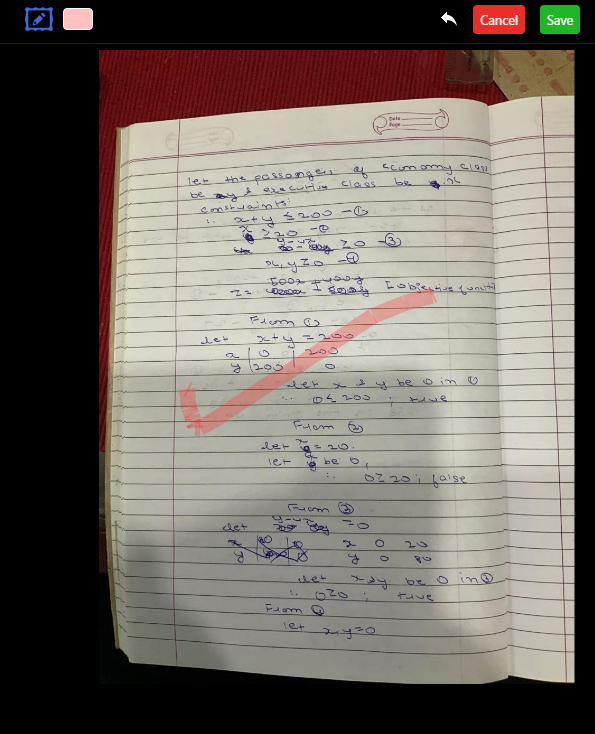 Cancel
Save
Date
Page
let the passangers of economy class
be y & executive class be x
constraints:
∴ x+y ≤ 200 -①
x ≥ 20 -②
y-4x ≥ 0 -③
x, y ≥ 0 -④
500x + 400y
z = [objective functi
From ①
let x+y = 200
x 0 200
y 200 0
let x & y be 0 in ①
∴ 0 ≤ 200 ; true
From ②
let x = 20.
let x be 0,
∴ 0 ≥ 20 ; false
From ③
let y-4x = 0
x 0 20
y 0 80
let x & y be 0 in ③
∴ 0 ≥ 0 ; true
From ④
let x, y = 0